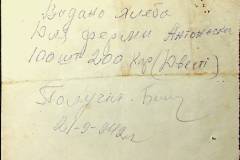 Видано хлеба
Для фермы Антоновка
100 шт 200 кгр (Двести)
Получил
21-9-42 г